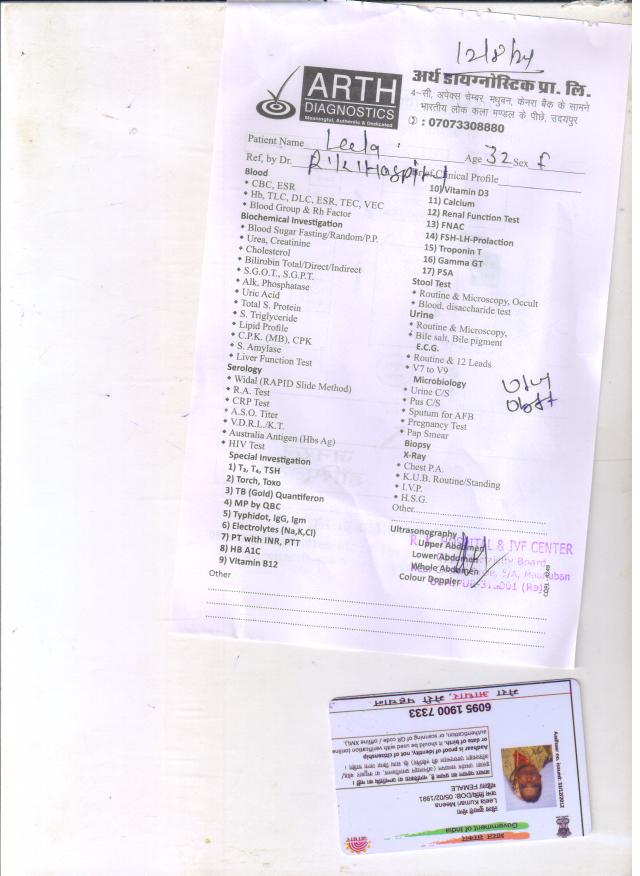 12/8/24
ARTH
DIAGNOSTICS
Meaningful, Authentic & Dedicated
अर्थ डायग्नोस्टिक प्रा. लि.
4-सी, अपेक्स चेम्बर, मधुबन, केनरा बैंक के सामने
भारतीय लोक कला मण्डल के पीछे, उदयपुर
: 07073308880
Patient Name Leela Age 32 Sex F
Ref, by Dr. Hospital Brief Clinical Profile
Blood
CBC, ESR
Hb, TLC, DLC, ESR, TEC, VEC
Blood Group & Rh Factor
Biochemical Investigation
Blood Sugar Fasting/Random/P.P.
Urea, Creatinine
Cholesterol
Bilirubin Total/Direct/Indirect
S.G.O.T., S.G.P.T.
Alk, Phosphatase
Uric Acid
Total S. Protein
S. Triglyceride
Lipid Profile
C.P.K. (MB), CPK
S. Amylase
Liver Function Test
Serology
Widal (RAPID Slide Method)
R.A. Test
CRP Test
A.S.O. Titer
V.D.R.L./K.T.
Australia Antigen (Hbs Ag)
HIV Test
Special Investigation
1) T₃, T₄, TSH
2) Torch, Toxo
3) TB (Gold) Quantiferon
4) MP by QBC
5) Typhidot, IgG, Igm
6) Electrolytes (Na,K,Cl)
7) PT with INR, PTT
8) HB A1C
9) Vitamin B12
Other
10) Vitamin D3
11) Calcium
12) Renal Function Test
13) FNAC
14) FSH-LH-Prolaction
15) Troponin T
16) Gamma GT
17) PSA
Stool Test
Routine & Microscopy, Occult
Blood, disaccharide test
Urine
Routine & Microscopy,
Bile salt, Bile pigment
E.C.G.
Routine & 12 Leads
V7 to V9
Microbiology
Urine C/S
Pus C/S
Sputum for AFB
Pregnancy Test
Pap Smear
Biopsy
X-Ray
Chest P.A.
K.U.B. Routine/Standing
I.V.P.
H.S.G.
Other
Ultrasonography
Upper Abdomen
Lower Abdomen
Whole Abdomen
Colour Doppler
HOSPITAL & IVF CENTER
Board,
5/A, Madhuban
भारत सरकार
Government of India
लीला कुमारी मीणा
Leela Kumari Meena
जन्म तिथि/DOB: 05/02/1991
महिला/ FEMALE
Aadhaar no. issued: 31/12/2012
Aadhaar is proof of identity, not of citizenship
or date of birth. It should be used with verification (online
authentication, or scanning of QR code / offline XML).
6095 1900 7333
मेरा आधार, मेरी पहचान